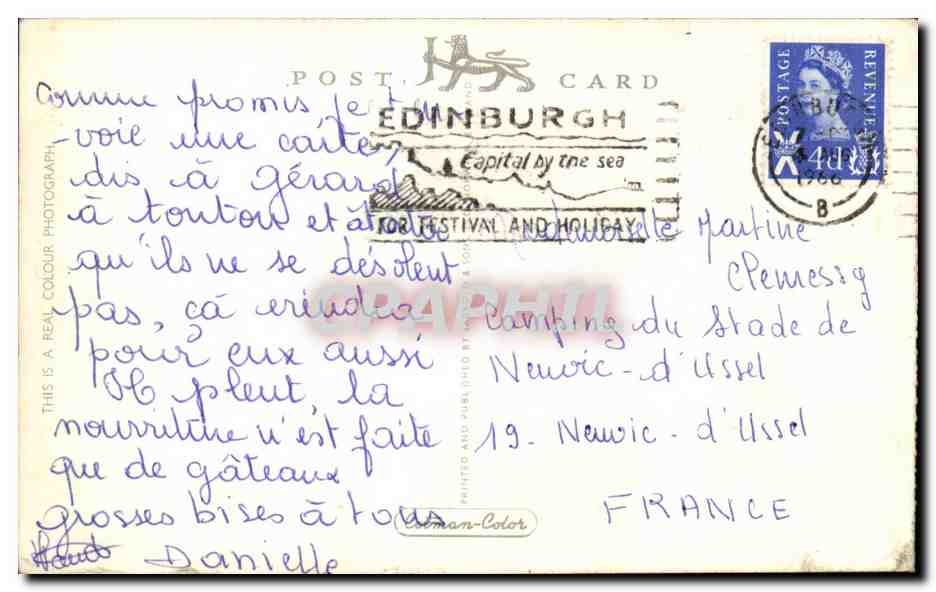 POST CARD
EDINBURGH
Capital by the sea
FOR FESTIVAL AND HOLIDAY
POSTAGE
REVENUE
4d
1966
B
THIS IS A REAL COLOUR PHOTOGRAPH
Comme promis je t'en
-voie une carte,
dis à gérard
à tonton et à
qu'ils ne se désolent
pas, çà viendra
pour eux aussi
Il pleut, la
nourriture n'est faite
que de gâteaux
grosses bises à tous
Danielle
PRINTED AND PUBLISHED BY
Colman-Color
Mademoiselle Martine
Clemessy
Camping du Stade de
Neuvic-d'Ussel
19- Neuvic-d'Ussel
FRANCE
CPAPHIL